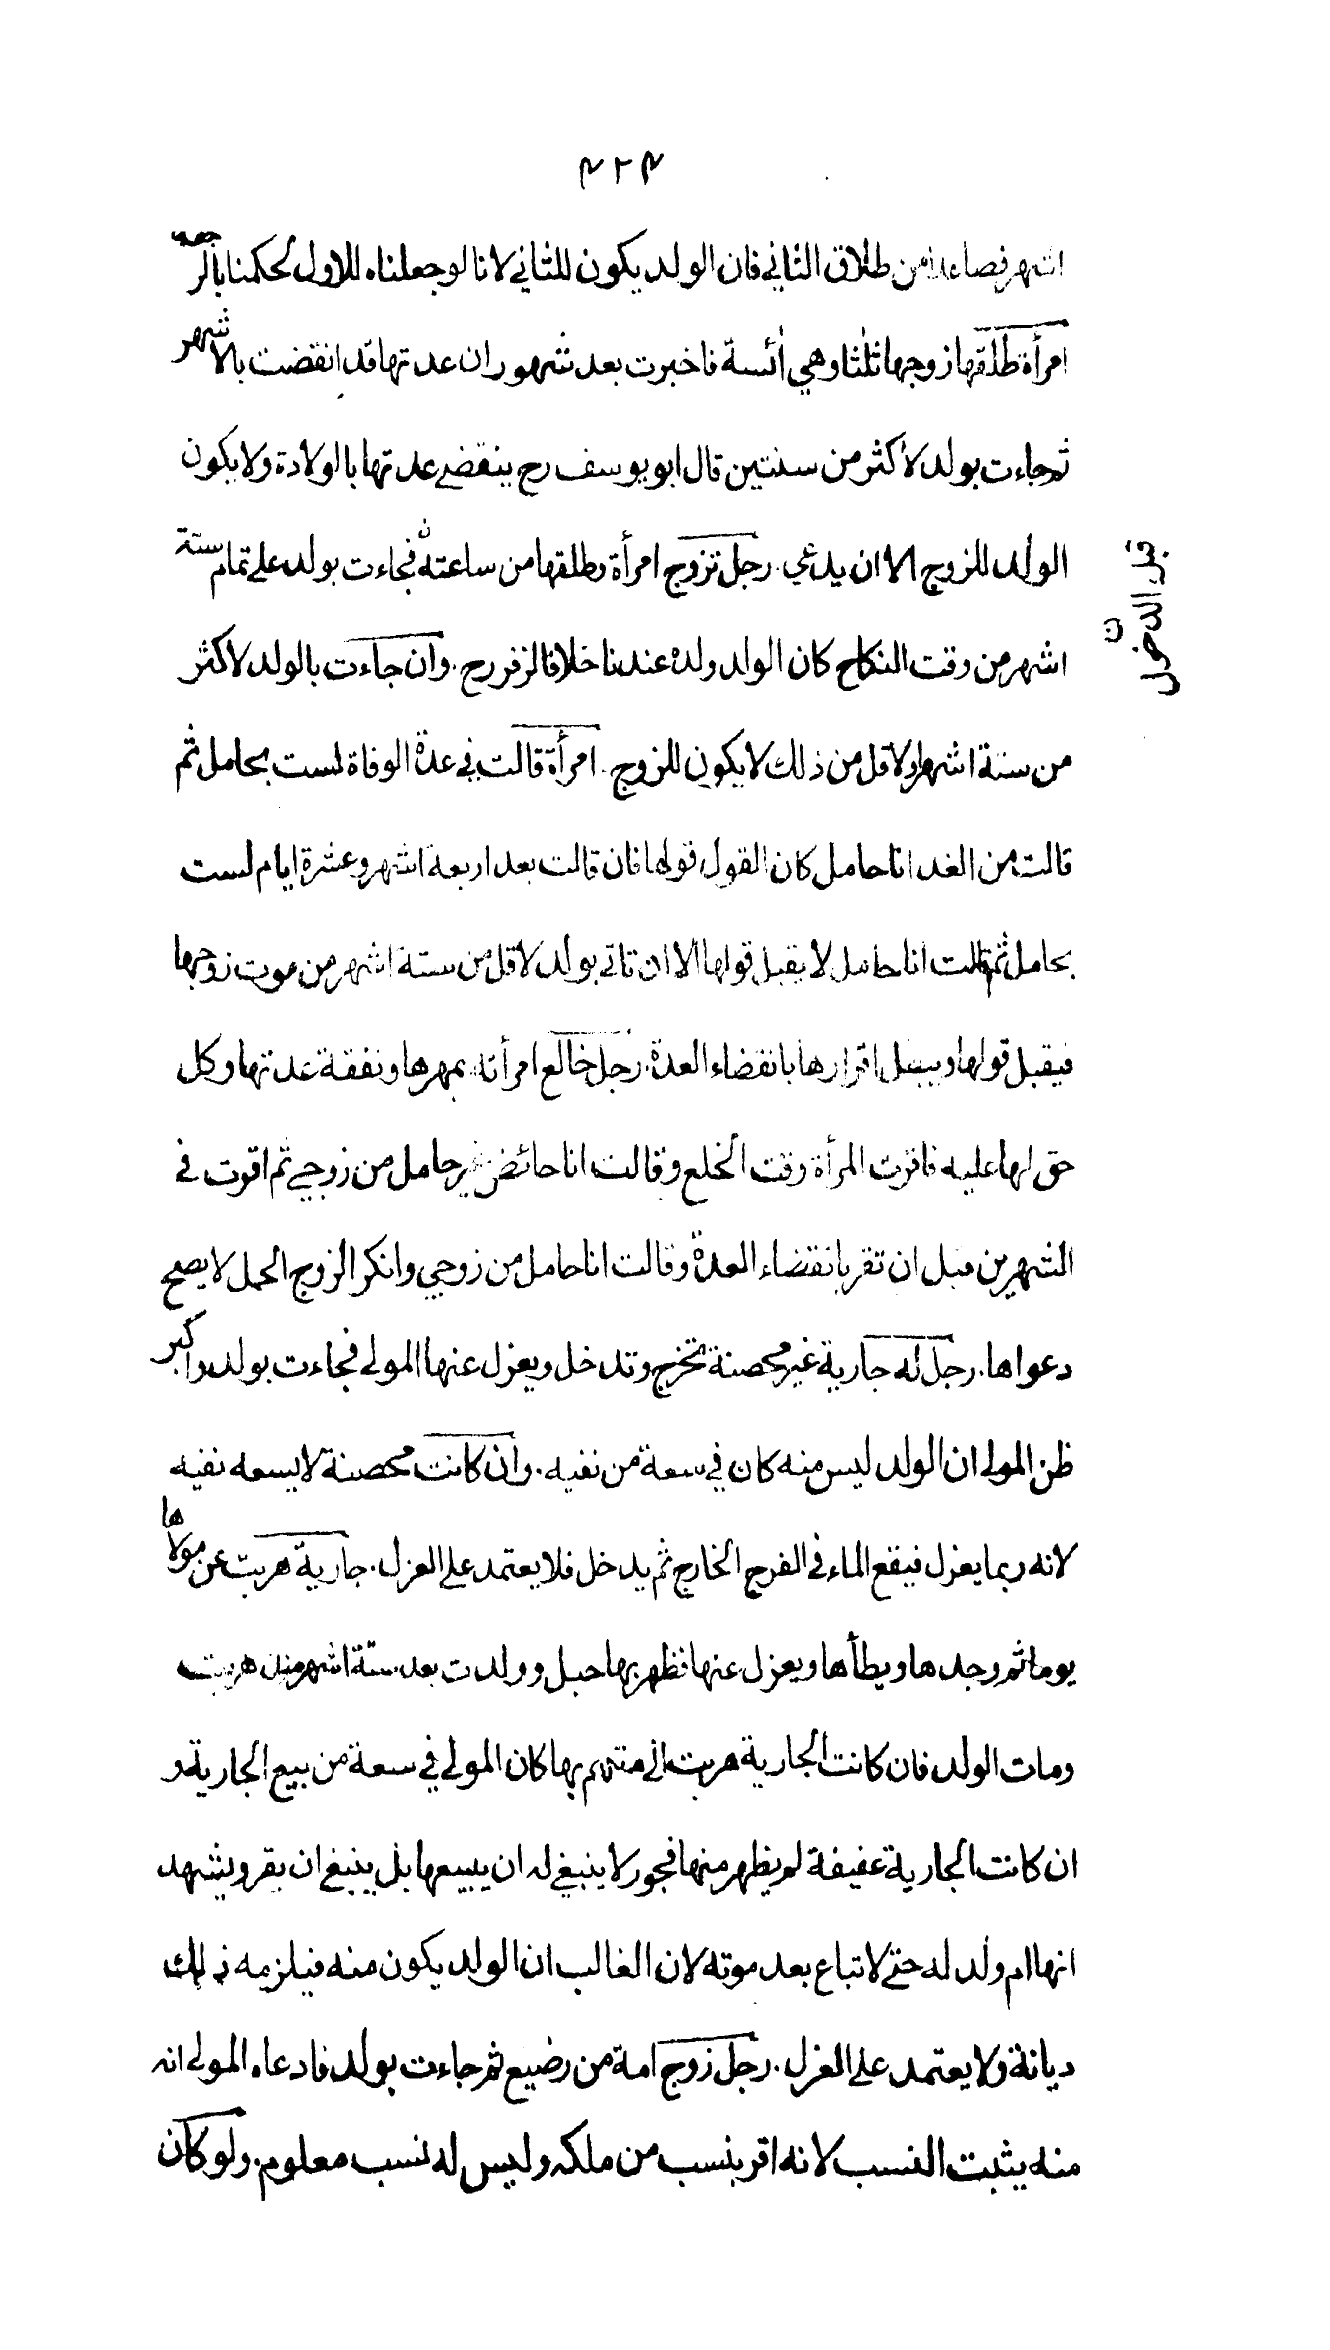 ٤٢٤
اشهر فصاعدا من طلاق الثاني فان الولد يكون للثاني لانا لو جعلناه للاول لحكمنا بالرجعة
امرأة طلقها زوجها ثلثا وهي أئسة فاخبرت بعد شهور ان عدتها قد انقضت بالاشهر
ثم جاءت بولد لاكثر من سنتين قال ابو يوسف رح ينقضي عدتها بالولادة ولا يكون
الولد للزوج الا ان يدعي . رجل تزوج امرأة وطلقها من ساعته ن فجاءت بولد على تمام ستة
ن قبل الدخول
اشهر من وقت النكاح كان الولد ولده عندنا خلافا لزفر رح . وان جاءت بالولد لاكثر
من ستة اشهر اولاقل من ذلك لا يكون للزوج . امرأة قالت في عدة الوفاة لست بحامل ثم
قالت من الغد انا حامل كان القول قولها فان قالت بعد اربعة اشهر وعشرة ايام لست
بحامل ثم قالت انا حامل لا يقبل قولها الا ان تاتي بولد لاقل من ستة اشهر من موت زوجها
فيقبل قولها ويبطل اقرارها بانقضاء العدة . رجل خالع امرأته بمهرها ونفقة عدتها وكل
حق لها عليه فاقرت المرأة وقت الخلع وقالت انا حائض غير حامل من زوجي ثم اقرت في
الشهرين قبل ان تقر بانقضاء العدة وقالت انا حامل من زوجي وانكر الزوج الحمل لا يصح
دعواها . رجل له جارية غير محصنة تخرج وتدخل ويعزل عنها المولى فجاءت بولد واكبر
ظن المولى ان الولد ليس منه كان في سعة من نفيه . وان كانت محصنة لا يسعه نفيه
لانه ربما يعزل فيقع الماء في الفرج الخارج ثم يدخل فلا يعتمد على العزل . جارية هربت عن مولاها
يوما ثم وجدها ويطأها ويعزل عنها فظهر بها حبل وولدت بعد ستة اشهر منذ هربت
ومات الولد فان كانت الجارية هربت الى متهم بها كان المولى في سعة من بيع الجارية و
ان كانت الجارية عفيفة لم يظهر منها فجور لا ينبغي له ان يبيعها بل ينبغي ان يقر ويشهد
انها ام ولد له حتى لا تباع بعد موته لان الغالب ان الولد يكون منه فيلزمه ذلك
ديانة ولا يعتمد على العزل . رجل زوج امة من رضيع ثم جاءت بولد فادعاه المولى انه
منه يثبت النسب لانه اقر بنسب من ملكه وليس له نسب معلوم . ولو كان